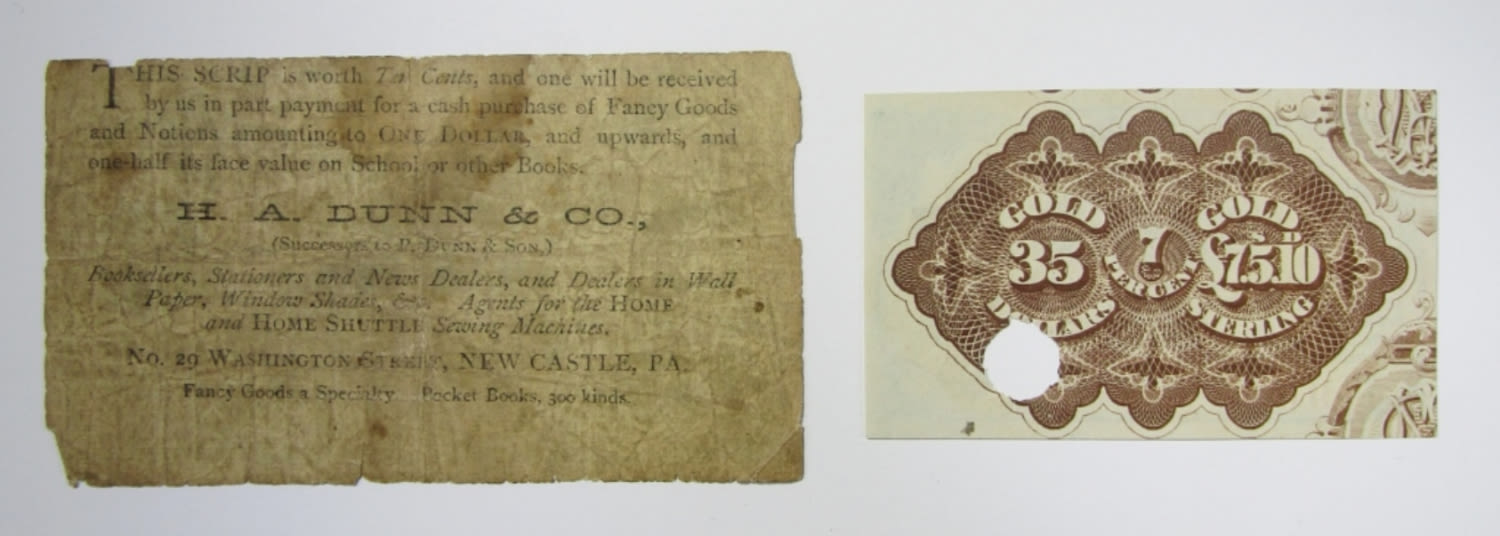 THIS SCRIP is worth Ten Cents, and one will be received
by us in part payment for a cash purchase of Fancy Goods
and Notions amounting to ONE DOLLAR, and upwards, and
one-half its face value on School or other Books.
H. A. DUNN & CO.,
(Successors to P. DUNN & SON,)
Booksellers, Stationers and News Dealers, and Dealers in Wall
Paper, Window Shades, &c. Agents for the HOME
and HOME SHUTTLE Sewing Machines.
No. 29 WASHINGTON STREET, NEW CASTLE, PA.
Fancy Goods a Specialty. Pocket Books, 300 kinds.
GOLD
35
DOLLARS
7
PER CENT
GOLD
S D
£7.5.10
STERLING